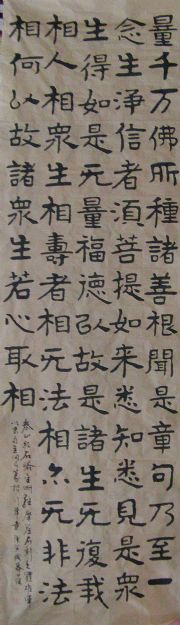 量千万佛所種諸善根聞是章句乃至一
念生淨信者須菩提如来悉知悉見是衆
生得如是无量福德以故是諸生无復我
相人相衆生相壽者相无法相亦无非法
相何以故諸衆生若心取相